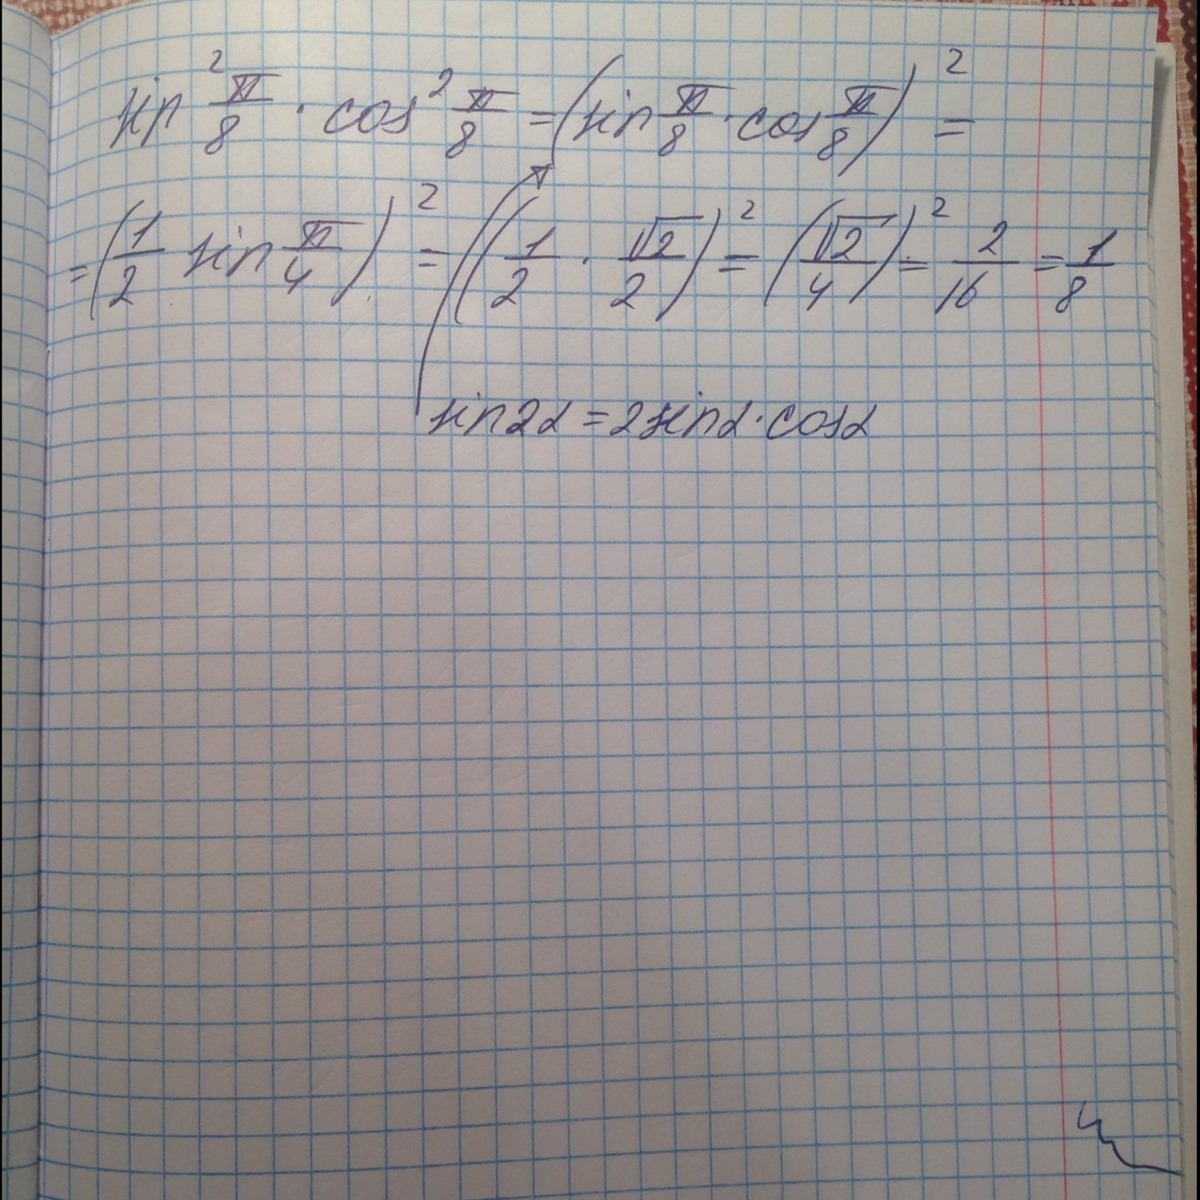 sin² π/8 · cos² π/8 = (sin π/8 · cos π/8)² =
= (1/2 sin π/4)² = ((1/2 · √2/2)² = (√2/4)² = 2/16 = 1/8
sin2α = 2sinα · cosα